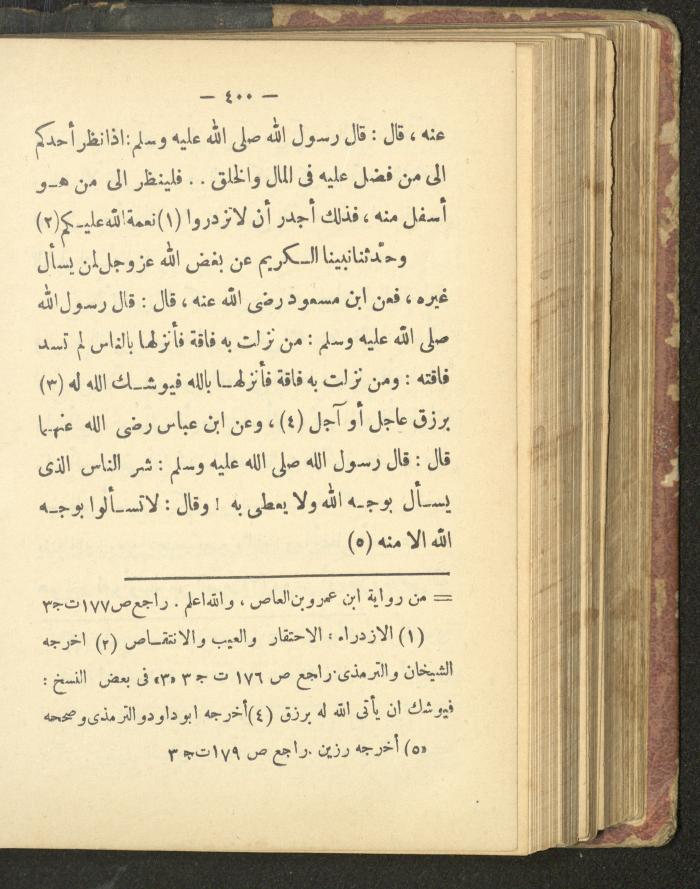 — ٤٠٠ —
عنه ، قال : قال رسول الله صلى الله عليه وسلم : اذا نظر أحدكم
الى من فضل عليه فى المال والخلق . . فلينظر الى من هـو
أسفل منه ، فذلك أجدر أن لا تزدروا (١) نعمة الله عليـكم (٢)
وحدثنا نبينا الـكريم عن بغض الله عز وجل لمن يسأل
غيره ، فعن ابن مسعود رضى الله عنه ، قال : قال رسول الله
صلى الله عليه وسلم : من نزلت به فاقة فأنزلها بالناس لم تسد
فاقته : ومن نزلت به فاقة فأنزلهـا بالله فيوشـك الله له (٣)
برزق عاجل أو آجل (٤) ، وعن ابن عباس رضى الله عنهما
قال : قال رسول الله صلى الله عليه وسلم : شر الناس الذى
يسـأل بوجـه الله ولا يعطى به ! وقال : لا تسـألوا بوجـه
الله الا منه (٥)
= من رواية ابن عمرو بن العاص ، والله اعلم . راجع ص ١٧٧ ت ج ٣
(١) الازدراء : الاحتقار والعيب والانتقـاص (٢) اخرجه
الشيخان والترمذى . راجع ص ١٧٦ ت ج ٣ «٣» فى بعض النسخ :
فيوشك ان يأتى الله له برزق (٤) أخرجه ابو داود والترمذى وصححه
«٥) أخرجه رزين . راجع ص ١٧٩ ت ج ٣